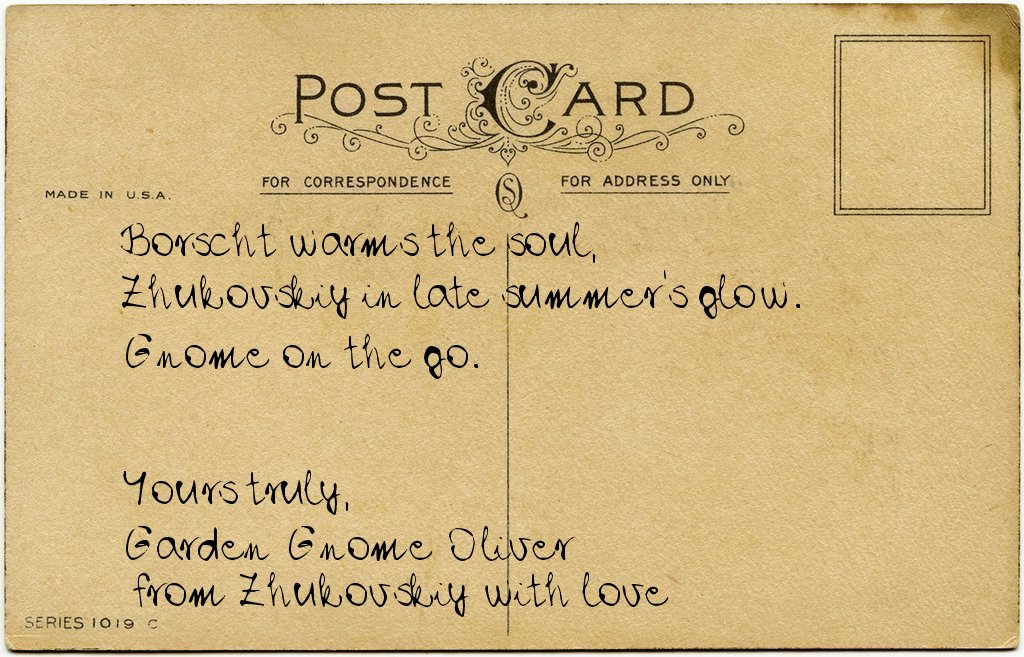 POST CARD
FOR CORRESPONDENCE
FOR ADDRESS ONLY
MADE IN U.S.A.
Borscht warms the soul,
Zhukovskiy in late summer's glow.
Gnome on the go.
Yours truly,
Garden Gnome Oliver
from Zhukovskiy with love
SERIES 1019 C